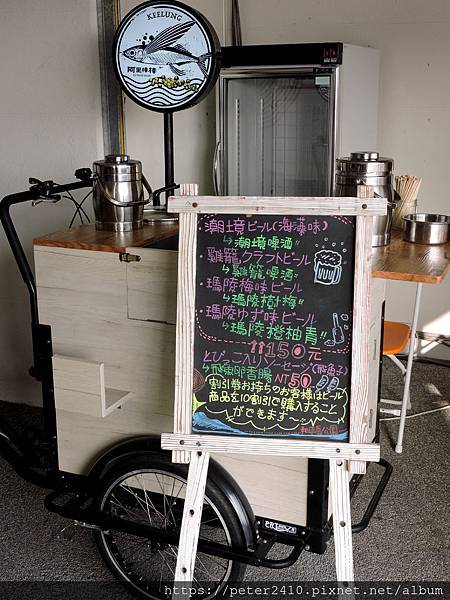 KEELUNG
阿里棒棒
・潮境ビール(海藻味)
↳潮境啤酒"
・雞籠クラフトビール
↳雞籠啤酒"
・瑪陵梅味ビール
↳瑪陵樹梅"
・瑪陵ゆず味ビール
↳瑪陵橙柚青"
↑↑150元
とびっこ入りソーセージ(飛魚子)
↳飛魚卵香腸 NT50
割引券お持ちのお客様はビール
商品を10割引で購入すること
ができます〜
和平島公園
https://peter2410.pixnet.net/album